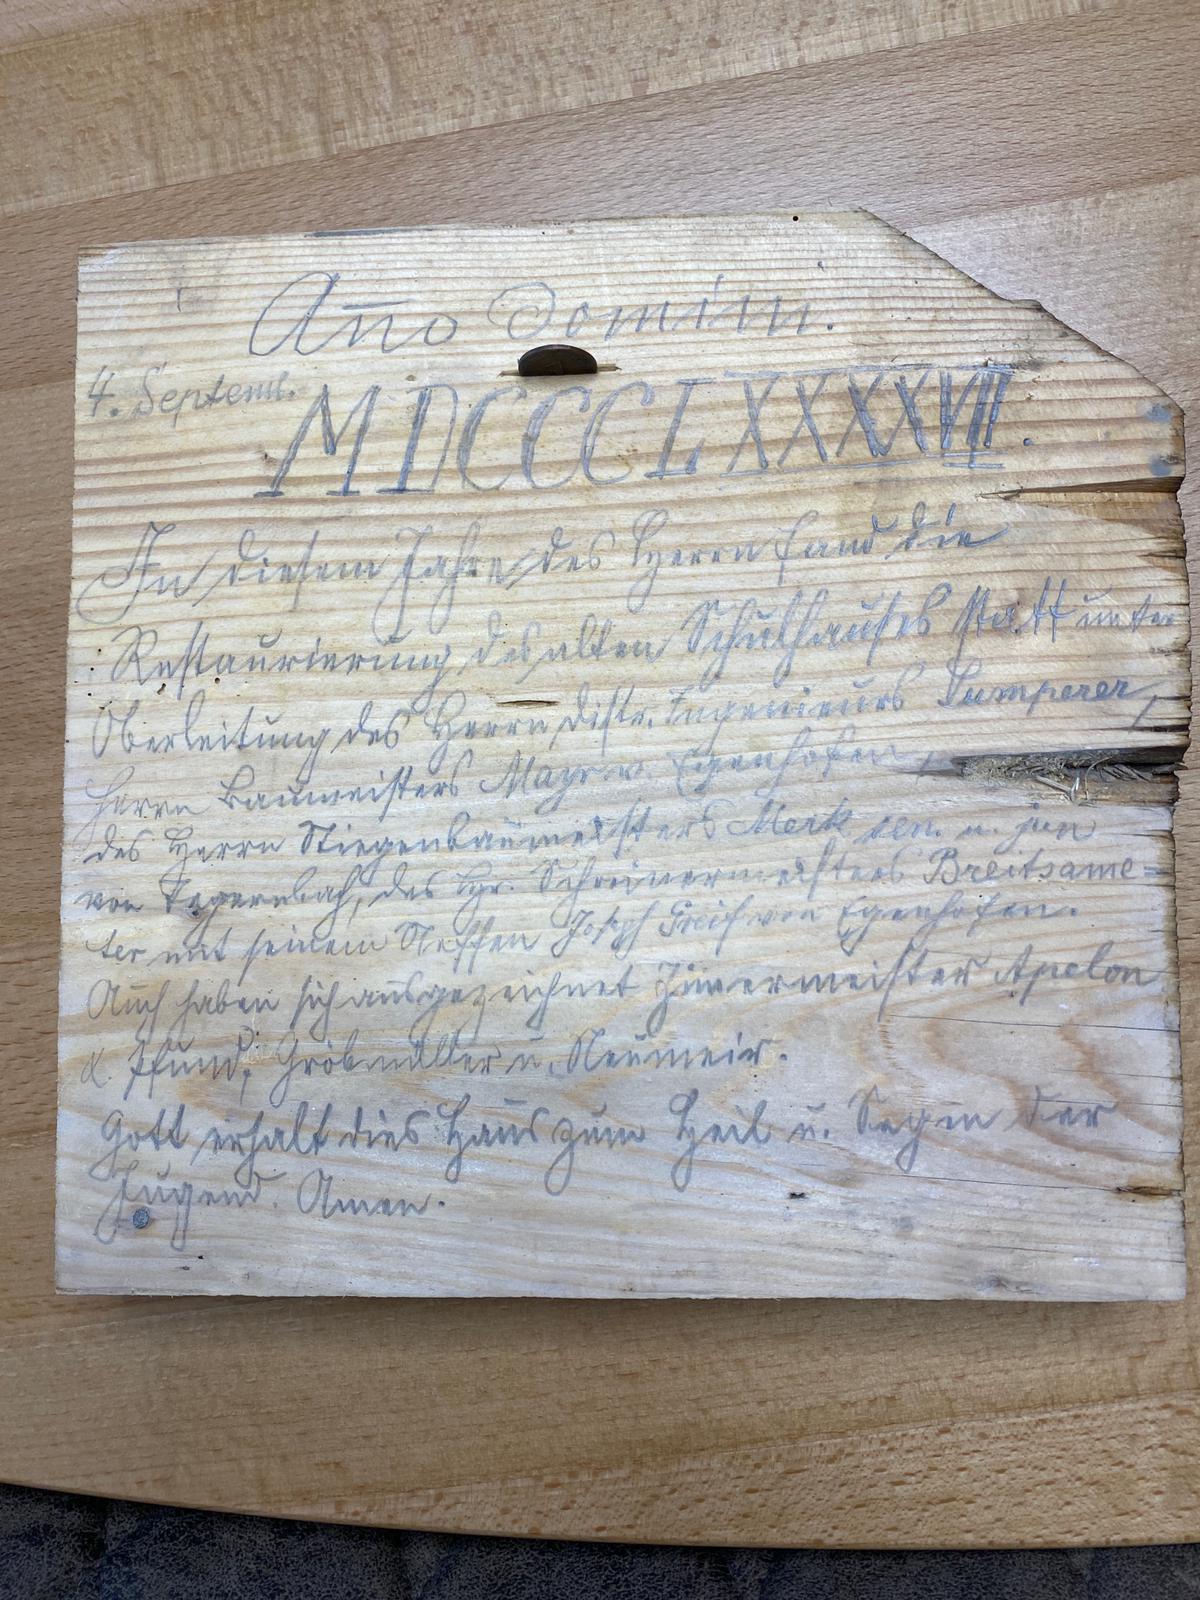 Año Domini.
4. Septemb.
MDCCCLXXXXVII.
In diesem Jahre des Herrn fand die
Restaurierung des alten Schulhauses statt unter
Oberleitung des Herrn Distr. Ingenieurs
Herrn Baumeisters Mayr v. Egenhofen,
des Herrn Stiegenbaumeisters Merk sen. u. jun
von Tegernbach, des Hr. Schreinermeisters Breitsame=
ter mit seinem Neffen Joseph Greif von Egenhofen.
Auch haben sich ausgezeichnet Zim̄ermeister Apelon
& Pfund, Gröbmüller u. Neumeir.
Gott erhalt dies Haus zum Heil u. Segen der
Jugend. Amen.